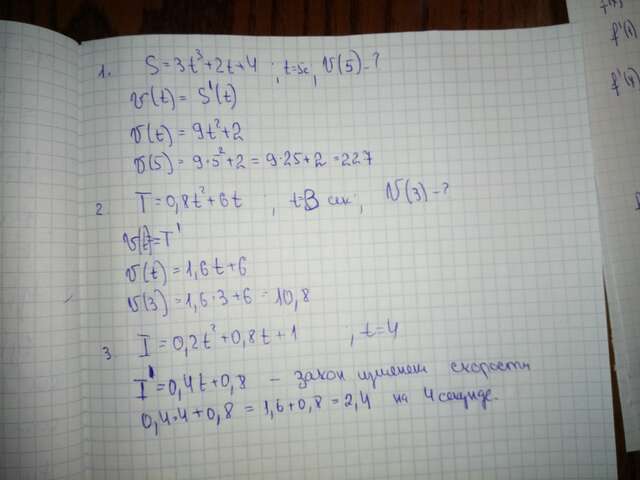 1. S = 3t³ + 2t + 4 ; t=5c, V(5) - ?
v(t) = S'(t)
v(t) = 9t² + 2
v(5) = 9·5² + 2 = 9·25 + 2 = 227
2 T = 0,8t² + 6t ; t=3 сек; V(3) - ?
v(t) = T'
v(t) = 1,6t + 6
v(3) = 1,6·3 + 6 = 10,8
3. I = 0,2t² + 0,8t + 1 ; t = 4
I' = 0,4t + 0,8 – закон изменен скорости
0,4·4 + 0,8 = 1,6 + 0,8 = 2,4 на 4 секунде.
f'(
f'(